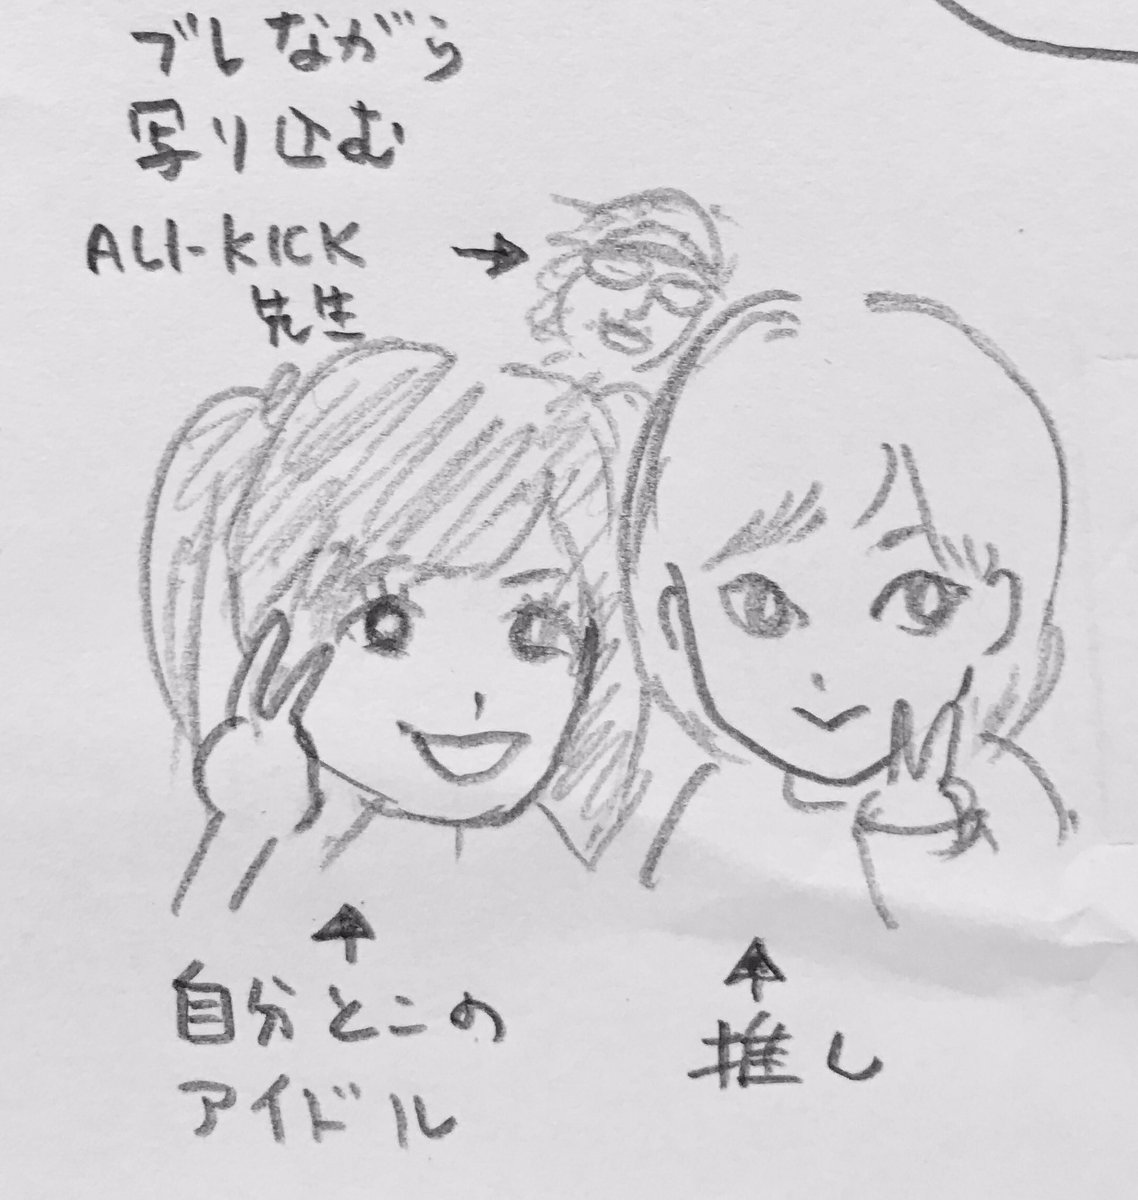 ブレながら
写り込む
ALI-KICK
先生
自分とこの
アイドル
推し